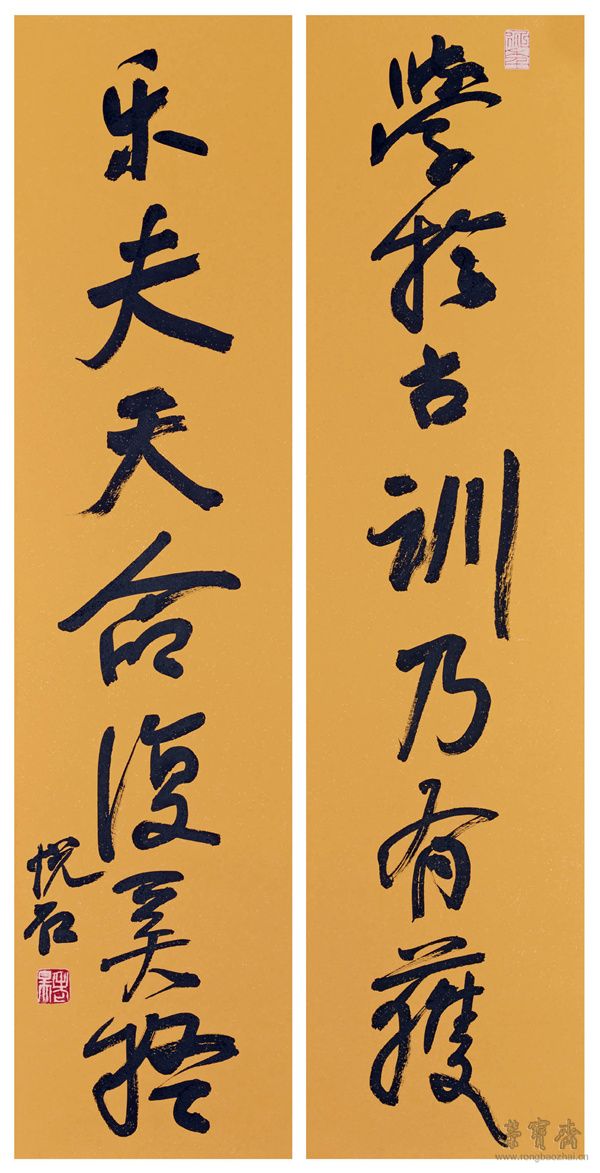 學於古訓乃有獲
乐夫天命復奚疑
悦石
榮寶齋
www.rongbaozhai.cn